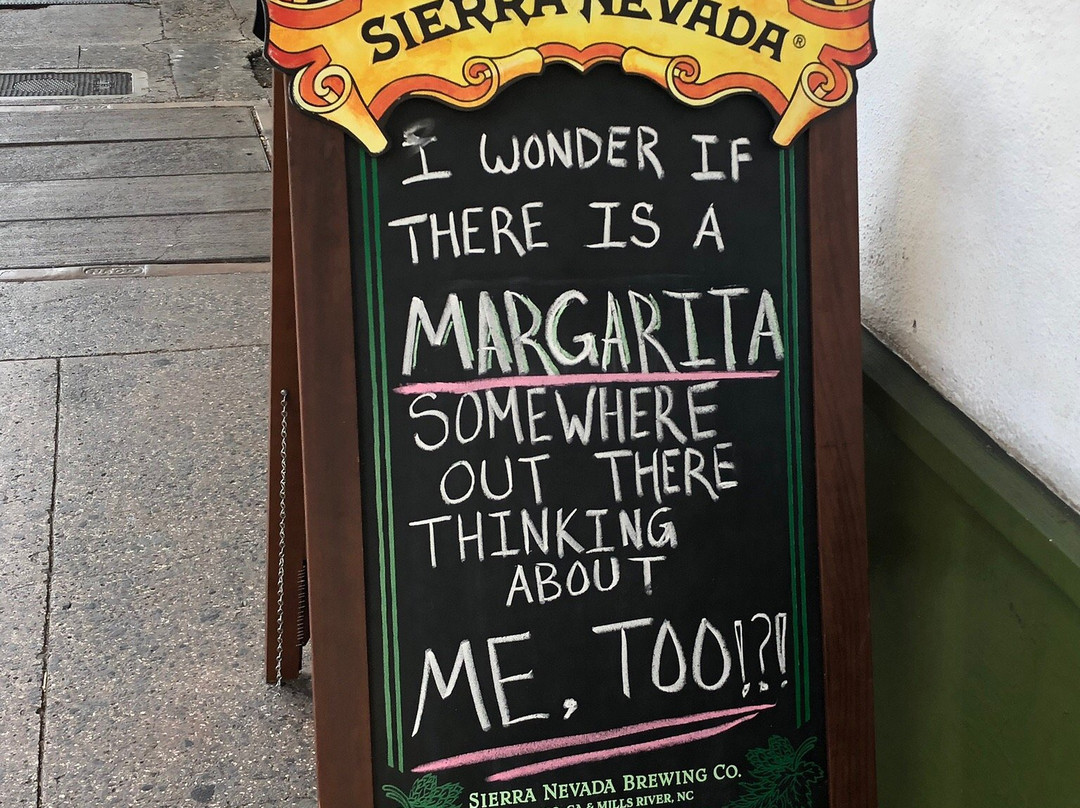 SIERRA NEVADA®
I WONDER IF
THERE IS A
MARGARITA
SOMEWHERE
OUT THERE
THINKING
ABOUT
ME, TOO!?!
SIERRA NEVADA BREWING CO.
CA & MILLS RIVER, NC